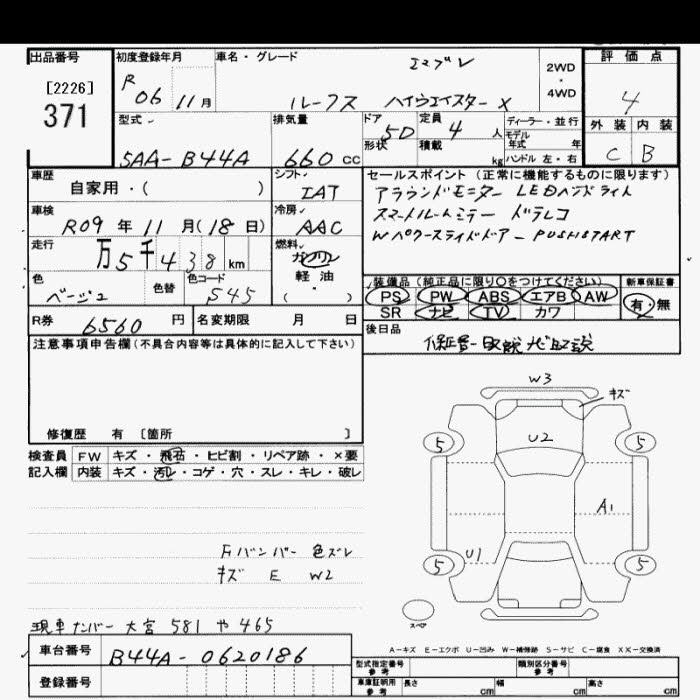 出品番号
[2226]
371
初度登録年月
R 06 11月
車名・グレード
エマブレ
ルークス ハイウェイスター X
2WD・4WD
評価点
4
外装 内装
C B
型式
5AA-B44A
排気量
660 CC
ドア形状
5D
定員 4 人
積載 kg
ディーラー・並行
モデル年式 年
ハンドル 左・右
車歴
自家用・( )
シフト
IAT
セールスポイント(正常に機能するものに限ります)
アラウンドモニター LEDヘッドライト
スマートルームミラー ドラレコ
Wパワースライドドアー PUSHSTART
車検
R09年11月(18日)
冷房
AAC
走行
万5千438km
燃料
ガソリン
軽油
( )
色
ベージュ
色替
色コード
S45
装備品(純正品に限り○をつけてください)
PS PW ABS エアB AW
SR ナビ TV カワ
新車保証書
有・無
R券
6560円
名変期限 月 日
後日品
保証書・取説 ナビ取説
注意事項申告欄(不具合内容等は具体的に記入して下さい)
修復歴 有 〔箇所 〕
検査員記入欄
FW キズ・飛石・ヒビ割・リペア跡・×要
内装 キズ・汚レ・コゲ・穴・スレ・キレ・破レ
Fバンパー 色ズレ
キズ E W2
W3
キズ
U2
5
5
A1
U1
5
5
スペア
現車ナンバー 大宮 581 や 465
A-キズ E-エクボ U-凹み W-補修跡 S-サビ C-腐食 XX-交換済
車台番号
B44A-0620186
登録番号
型式指定番号 参考
類別区分番号 参考
車庫証明用 参考
長さ cm
幅 cm
高さ cm